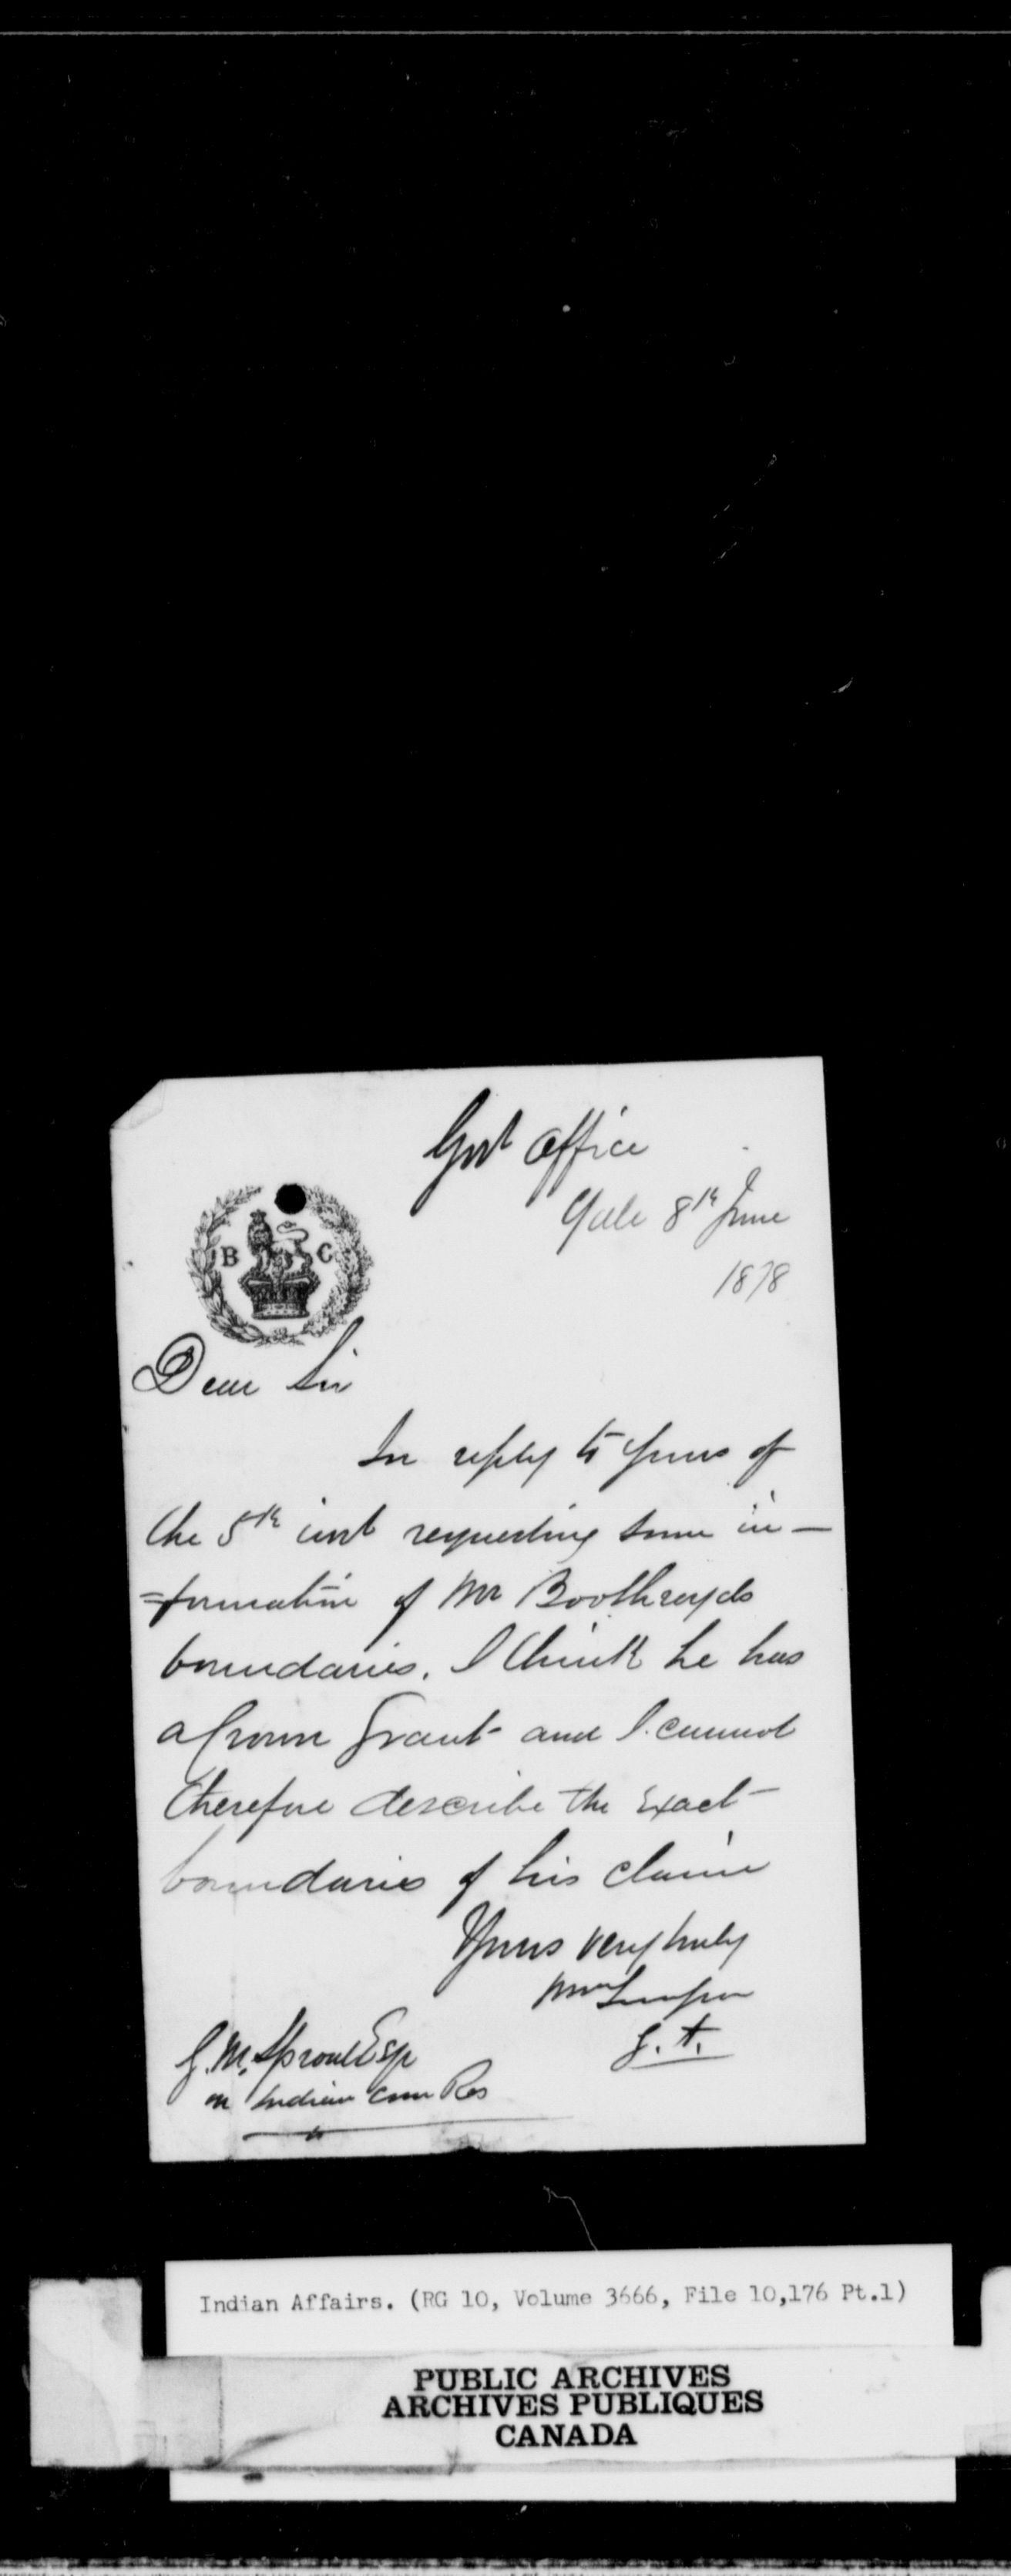 Govt Office
Yale 8th June
1878
B C
Dear Sir
In reply to yours of
the 5th inst requesting some in-
=formation of Mr Boothroyds
boundaries. I think he has
a Crown Grant and I cannot
therefore describe the Exact
boundaries of his claim
Yours very truly
G.M. Sproat Esq
Indian Com Res
Indian Affairs. (RG 10, Volume 3666, File 10,176 Pt.1)
PUBLIC ARCHIVES
ARCHIVES PUBLIQUES
CANADA